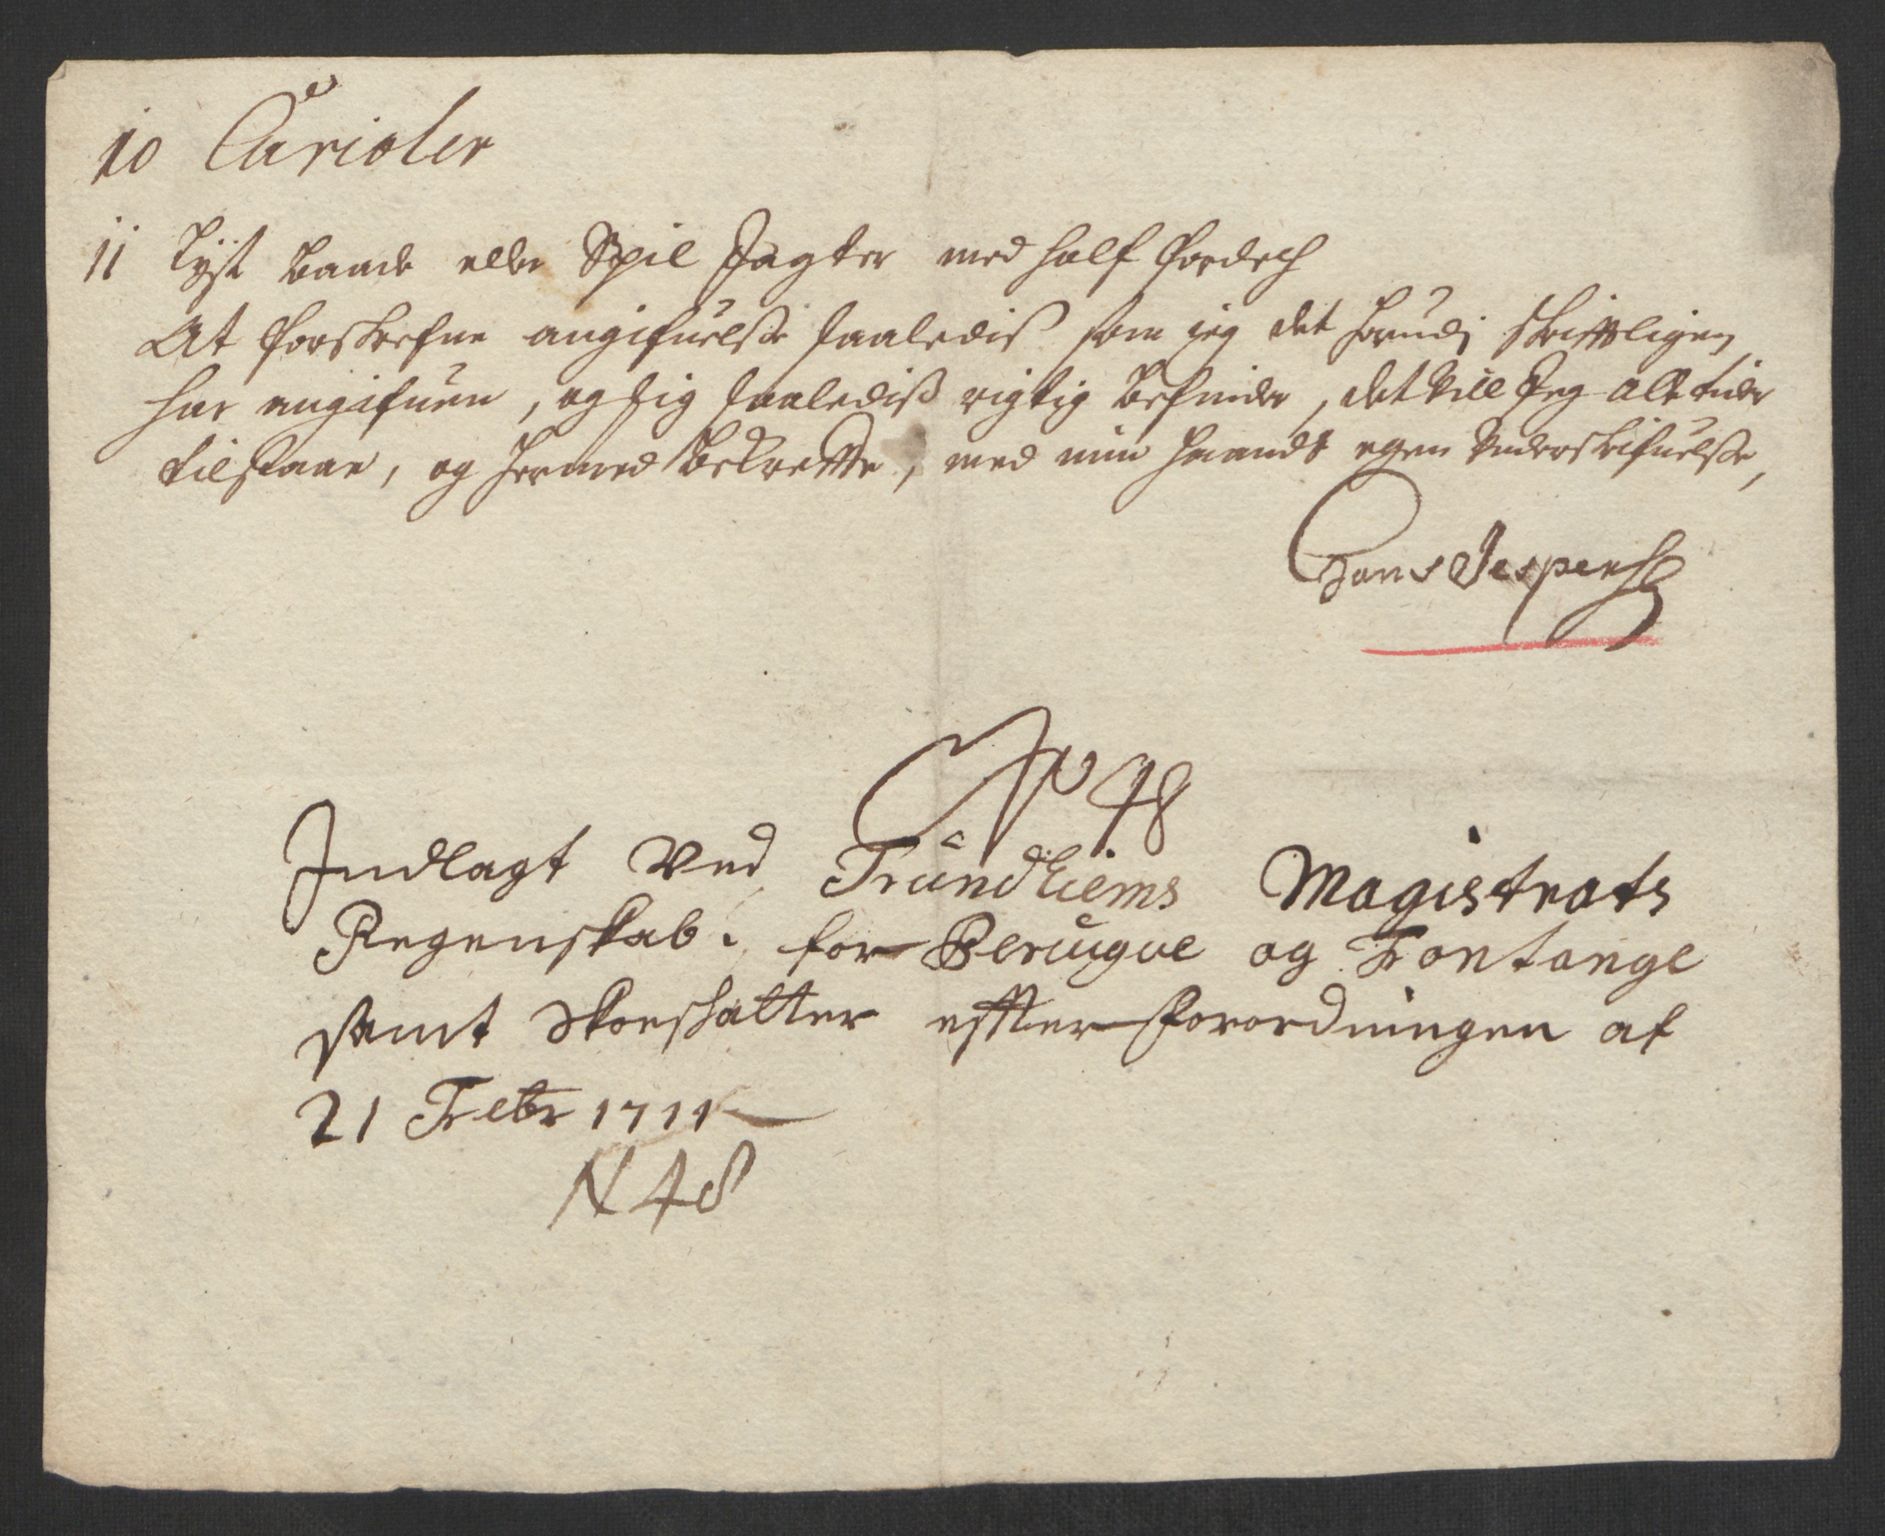 10 Carioler
11 Lyst baade eller Spil Jagter med half fordech
At forskrefne angifuelsse saaledis som jeg det herudj skrifftligen
har angifuen, og sig saalediß rigtig befinder, det vill Jeg alletider
tilstaae, og hermed bekreffte, med min haands egen Underskrifuelsse,
Hans Jespers
No 48
Indlagt ved Trundhiems Magistrats
Regenskab. for Peruque og Fontange
samt Skoeskatter effter Forordningen af
21 Febr 1711
N 48